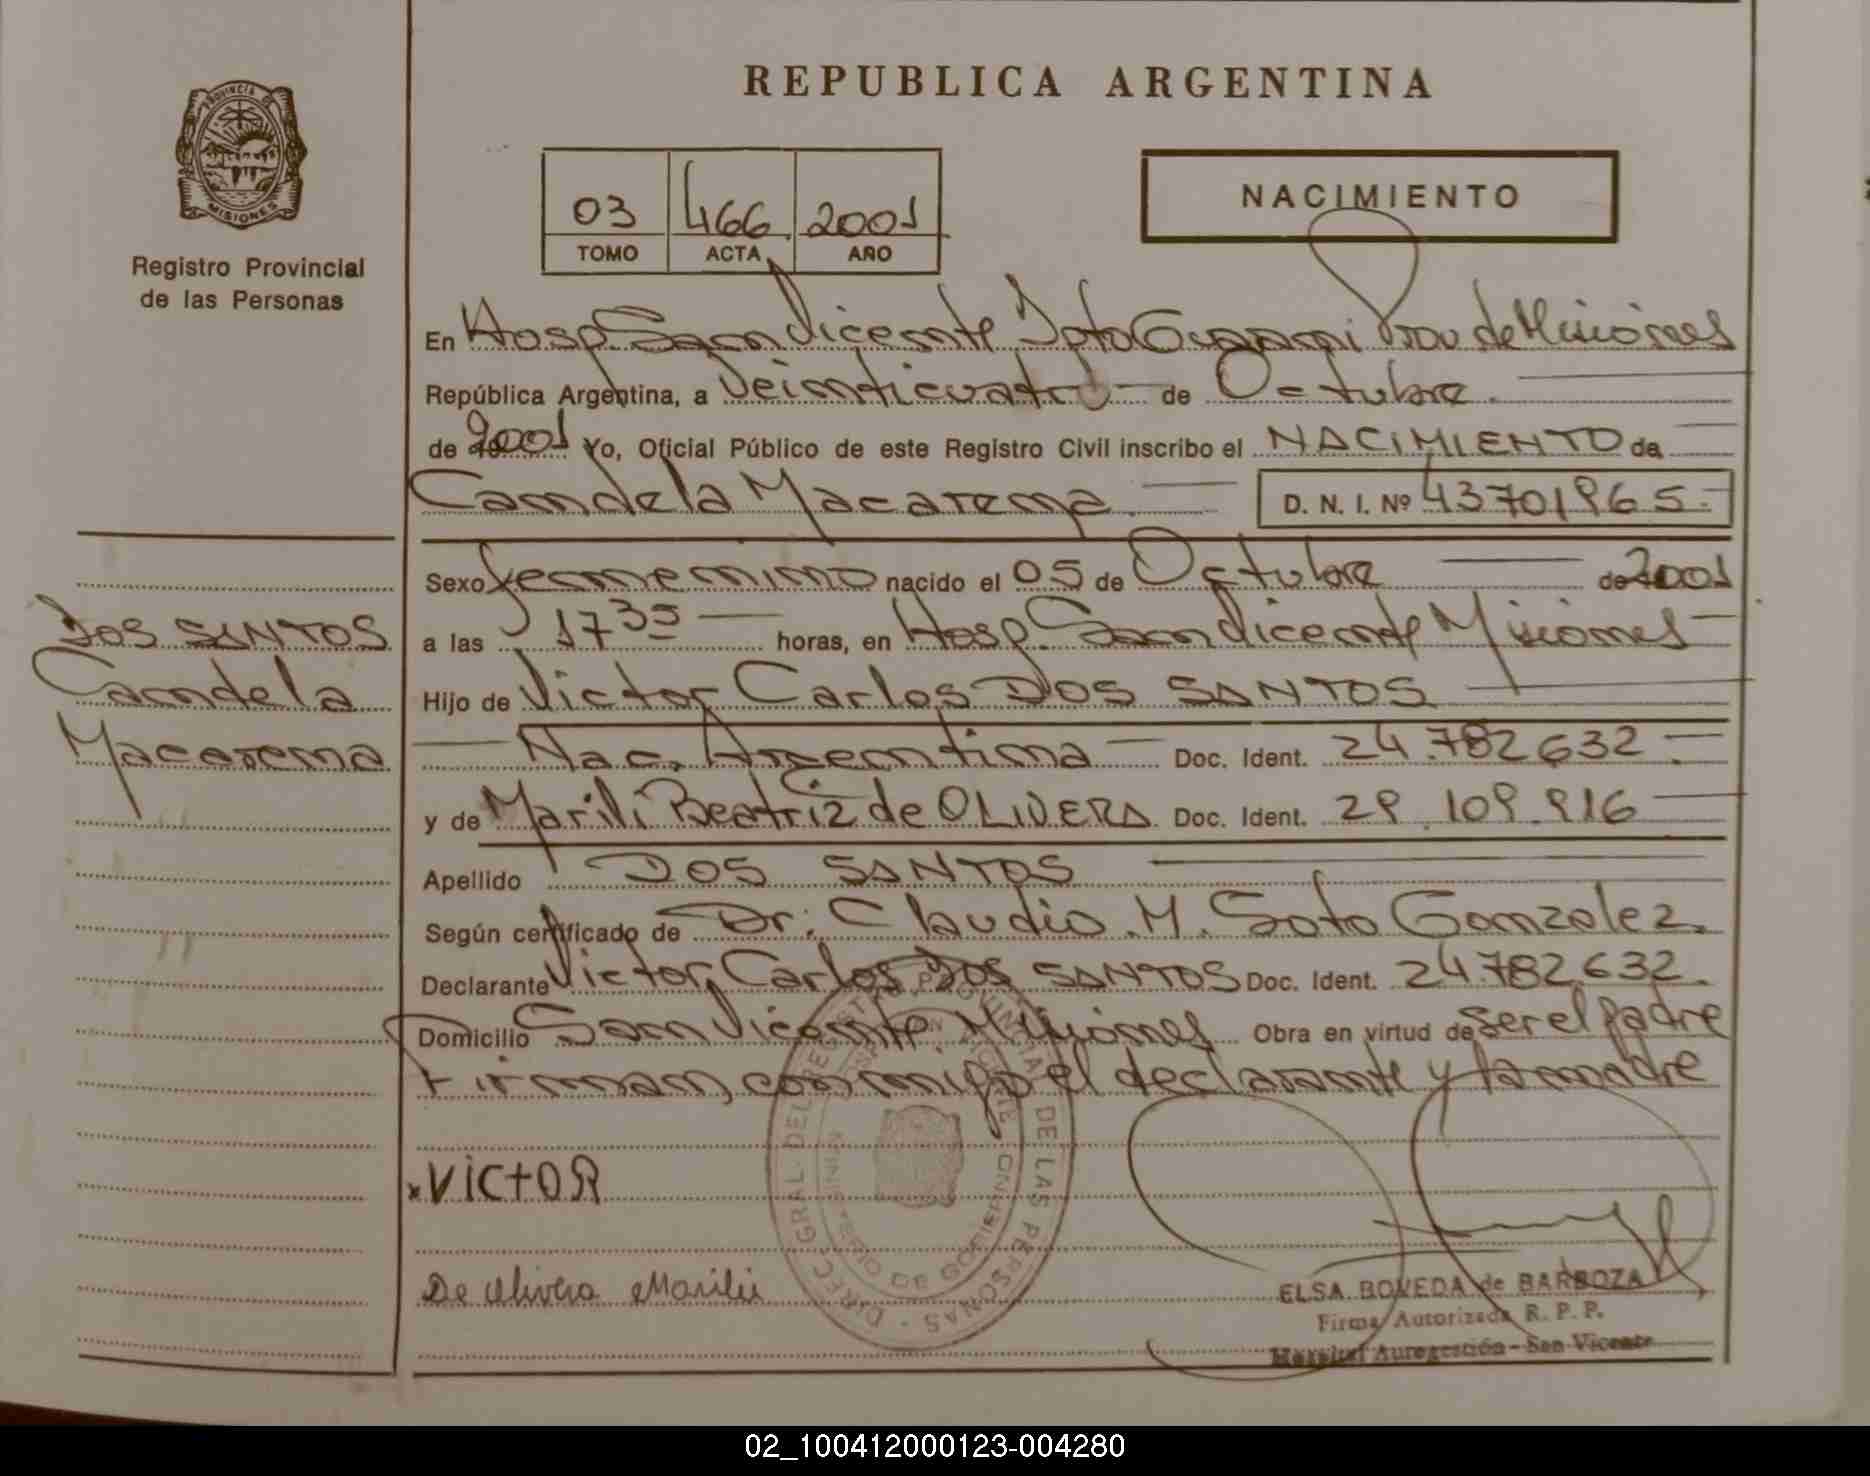 REPUBLICA ARGENTINA
PROVINCIA DE
MISIONES
Registro Provincial
de las Personas
03 466 2001
TOMO ACTA AÑO
NACIMIENTO
En Hosp. San Vicente Dpto Guarani Prov de Misiones
República Argentina, a Veinticuatro de Octubre.
de 2001 Yo, Oficial Público de este Registro Civil inscribo el NACIMIENTO de
Candela Macarena. D. N. I. Nº 43701965.
Sexo femenino nacido el 05 de Octubre de 2001
a las 17 35 horas, en Hosp. San Vicente Misiones
Hijo de Victor Carlos DOS SANTOS
Nac. Argentina Doc. Ident. 24.782632.
y de Marili Beatriz de OLIVERA Doc. Ident. 29.109.916
Apellido DOS SANTOS
Según certificado de Dr: Claudio M. Soto Gonzalez.
Declarante Victor Carlos DOS SANTOS Doc. Ident. 24.782.632.
Domicilio San Vicente Misiones Obra en virtud de ser el padre
Firman, conmigo el declarante y la madre
DOS SANTOS
Candela
Macarena
x VictOR
De Olivera Marili
DIREC. GRAL. DEL REGISTRO PROVINCIAL DE LAS PERSONAS
MINISTERIO DE GOBIERNO
ELSA BOVEDA de BARBOZA
Firma Autorizada R. P. P.
Hospital Autogestión - San Vicente
02_100412000123-004280